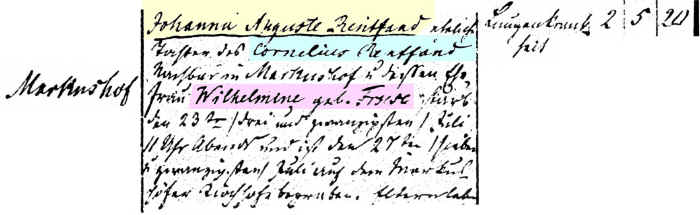 Johanna Auguste Rentfand ehelich
Tochter des Cornelius Rentfand
Nachbar in Markushof u dessen Ehe
frau Wilhelmine geb. Froese starb
den 23 ten / drei und zwanzigsten / Juli
11 Uhr Abends und ist den 27 ten / sieben
u zwanzigsten / Juli auf dem Markus
höfer Kirchhofe begraben. Eltern leben
Markushof
Lungenkrank
heit
2 5 24